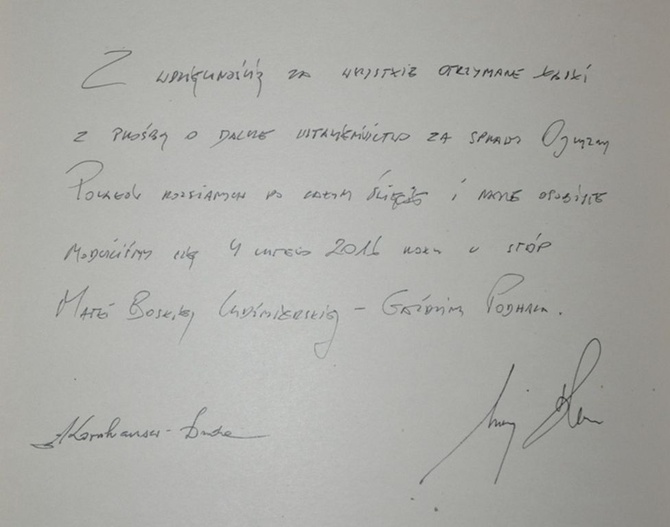 Z wdzięcznością za wszystkie otrzymane łaski
z prośbą o dalsze wstawiennictwo za sprawą Ojczyzny
Polaków rozsianych po całym świecie i nasze osobiste
modliliśmy się 4 lutego 2016 roku u stóp
Matki Boskiej Ludźmierskiej – Gaździny Podhala.
AKornhauser-Duda